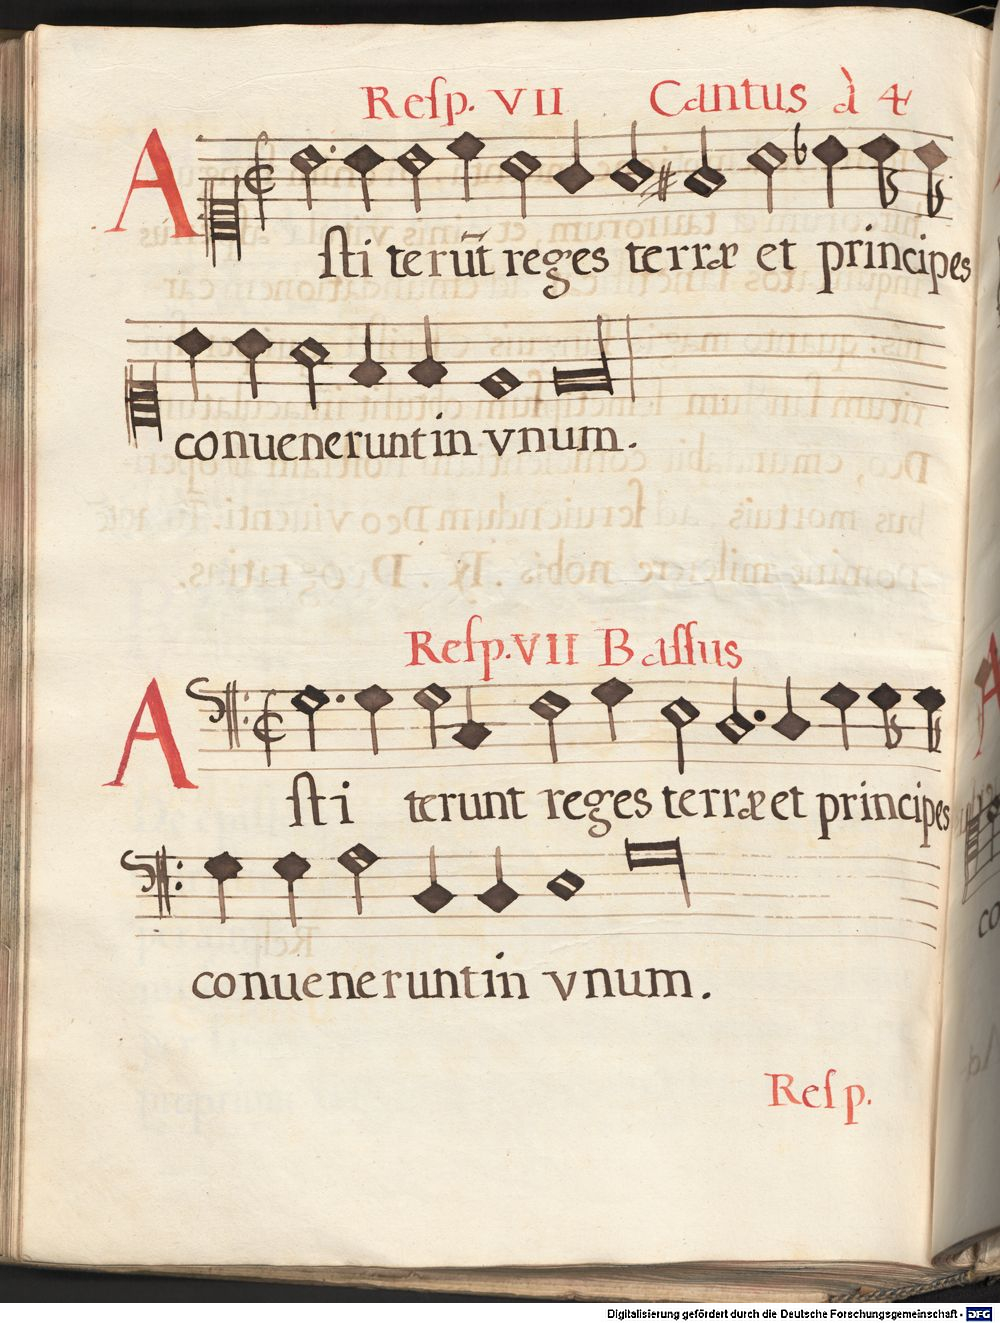 Reſp. VII Cantus à 4
Aſti terũt reges terræ et principes
conuenerunt in vnum.
Reſp. VII Baſſus
Aſti terunt reges terræ et principes
conuenerunt in vnum.
Reſp.
Digitalisierung gefördert durch die Deutsche Forschungsgemeinschaft - DFG